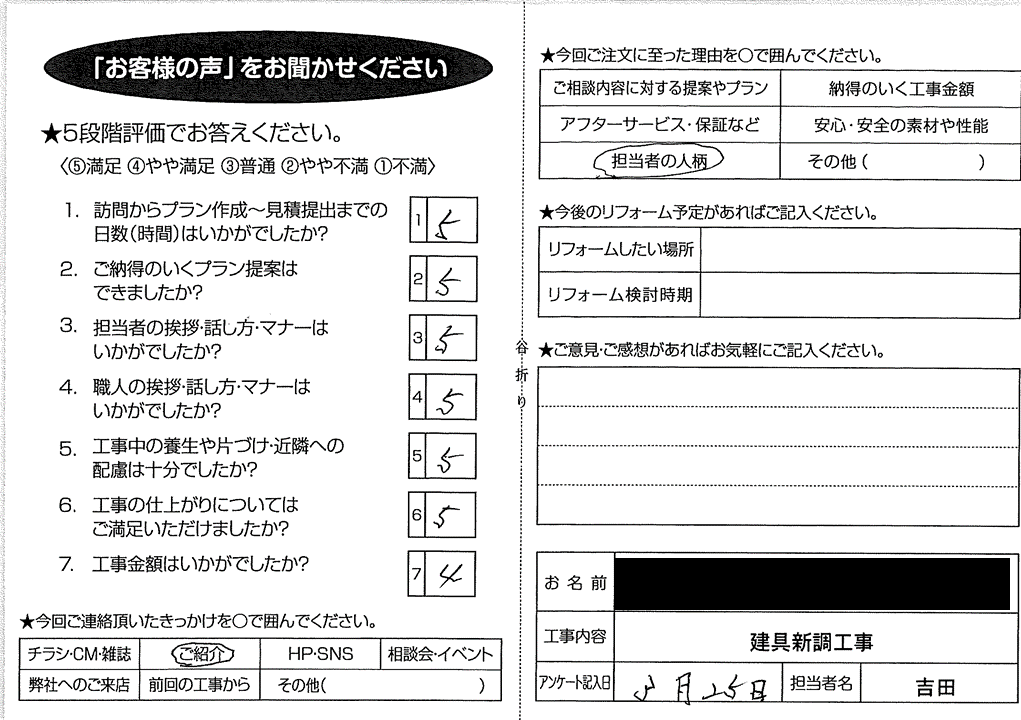 「お客様の声」をお聞かせください
★5段階評価でお答えください。
〈⑤満足 ④やや満足 ③普通 ②やや不満 ①不満〉
1. 訪問からプラン作成～見積提出までの
日数(時間)はいかがでしたか?
1 5
2. ご納得のいくプラン提案は
できましたか?
2 5
3. 担当者の挨拶・話し方・マナーは
いかがでしたか?
3 5
4. 職人の挨拶・話し方・マナーは
いかがでしたか?
4 5
5. 工事中の養生や片づけ・近隣への
配慮は十分でしたか?
5 5
6. 工事の仕上がりについては
ご満足いただけましたか?
6 5
7. 工事金額はいかがでしたか?
7 4
★今回ご連絡頂いたきっかけを○で囲んでください。
チラシ・CM・雑誌 ご紹介 HP・SNS 相談会・イベント
弊社へのご来店 前回の工事から その他( )
谷折り
★今回ご注文に至った理由を○で囲んでください。
ご相談内容に対する提案やプラン 納得のいく工事金額
アフターサービス・保証など 安心・安全の素材や性能
担当者の人柄 その他( )
★今後のリフォーム予定があればご記入ください。
リフォームしたい場所
リフォーム検討時期
★ご意見・ご感想があればお気軽にご記入ください。
お名前
工事内容 建具新調工事
アンケート記入日 3月25日 担当者名 吉田